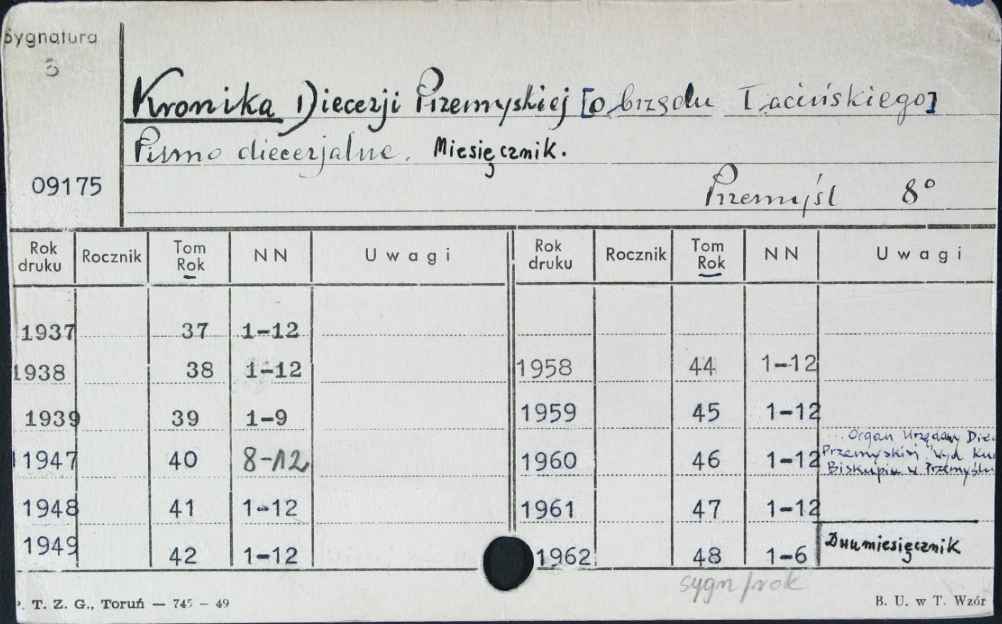 Sygnatura
3
Kronika Diecezji Przemyskiej [obrządu Łacińskiego]
Pismo diecezjalne. Miesięcznik.
09175
Przemyśl 8°
Rok druku Rocznik Tom Rok NN Uwagi Rok druku Rocznik Tom Rok NN Uwagi
1937 37 1-12
1938 38 1-12 1958 44 1-12
1939 39 1-9 1959 45 1-12
1947 40 8-12 1960 46 1-12 Organ Urzędow Die
Przemyskiej Wyd Ku
Biskupia w Przemyślu
1948 41 1-12 1961 47 1-12
1949 42 1-12 1962 48 1-6 Dwumiesięcznik
sygn/rok
P. T. Z. G., Toruń — 745 — 49 B. U. w T. Wzór